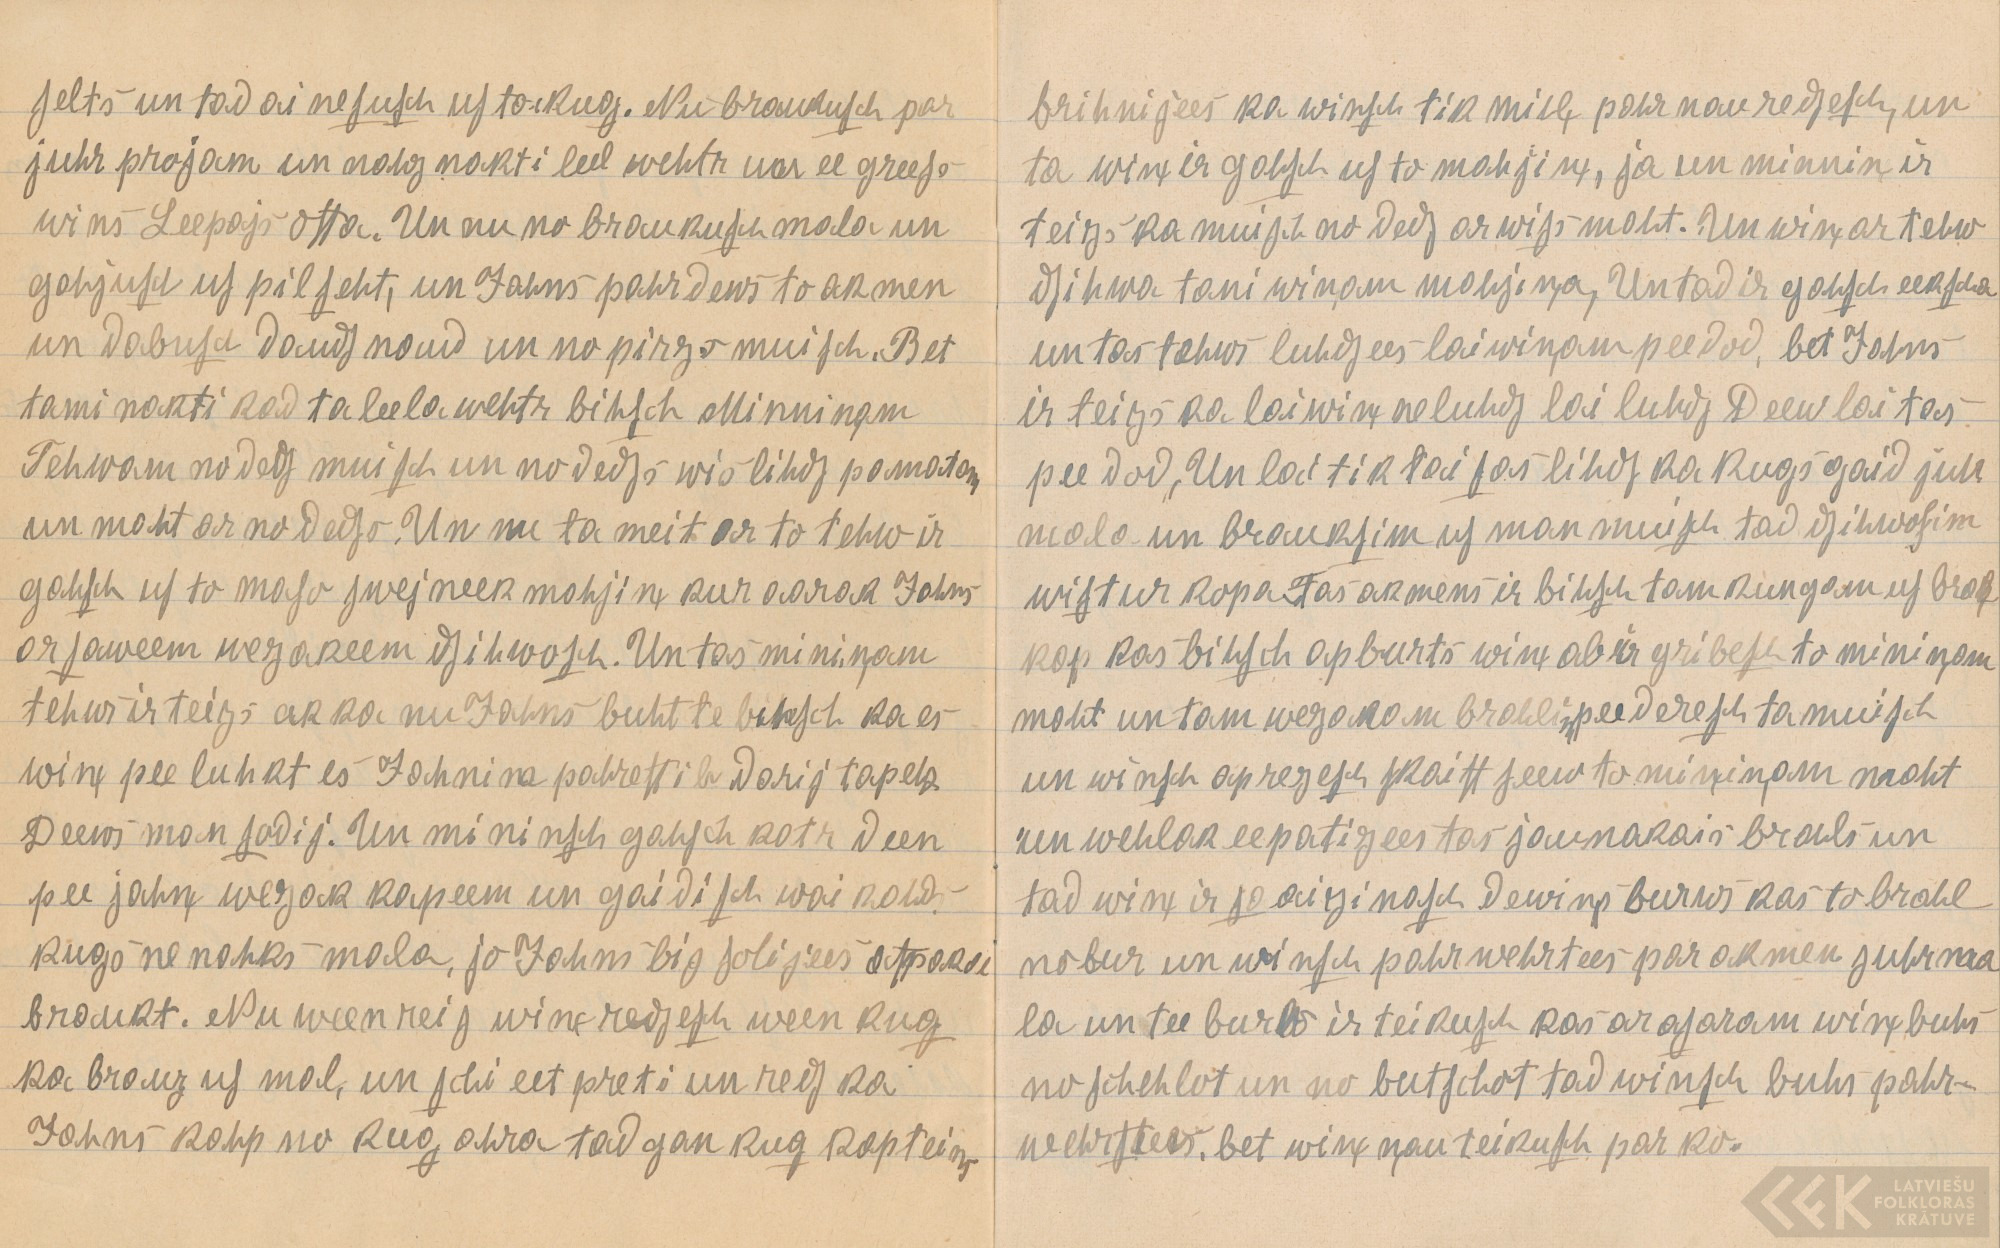 ſelts un tad ai neſuſch uſ to kug. Nu braukuſch par
juhr projam un nahz nakti leel wehtr un ee greeſs
wins Leepajs oſta. Un nu no braukuſch mala un
gahjuſch uſ pilſeht, un Jahns pahrdews to akmen
un dabuſch daudſ naud un no pirzs muiſch. Bet
tami nakti kad ta leela wehtr bihſch Minninam
Tehwam no dedſ muiſch un no dedſs wis lihdſ pamatam
un maht ar no dedſs. Un nu ta meit ar to tehw ir
gahſch uſ to maſo ſwejneek mahjiņ kur aarak Jahns
ar ſaweem wezakeem dſihwoſch. Un tas miniņam
tehws ir teizs ak ka nu Jahns buht te bihſch ka es
wiņ pee luhkt es Jahnina pahreſtib darij tapehz
Deews man ſodij. Un mininſch gahſch katr deen
pee jahņ wezak kapeem un gaidiſch wai kahds
kugs ne nahks mala, jo Jahns bij ſolijees atpakaļ
braukt. Nu ween reiz wiņ redſeſch ween kug
ka brauz uſ mal, un ſchi eet preti un redſ ka
Jahns kahp no kug ahra tad gan kug kapteiņs
brihnijees ka winſch tik miļ pahr nau redſeſch, un
ta wiņ ir gahſch uſ to mahjiņ, ja un minnin ir
teizs ka muiſch no dedſ ar wiſs maht. Un wiņ ar tehw
dſihwa tani wiņam mahjiņa, Un tad ir gahſch eekſcha
un tas tehws luhdſees lai wiņam peedod, bet Jahns
ir teizs ka lai wiņ ne luhdſ lai luhdſ Deew lai tas
pee dod, Un lai tik taiſas lihdſ ka kugs gaid juhr
mala un braukſim uſ man muiſch tad dſihwoſim
wiſ tur kopa. Tas akmens ir bihſch tam kungam uſ brahļ
kap kas bihſch apburts wiņ ab ir gribeſch to miniņam
maht un tam wezakam brahlim peedereſch ta muiſch
un winſch aprezeſch ſkaiſt ſeew to miniņam maht
un wehlak eepatizees tas jaunakais brahls un
tad wiņ ir ſa aizinaſch dewiņ burws kas to brahl
no bur un winſch pahrwehrtees par akmen juhrma
la un tee burws ir teikuſch kas ar aſaram wiņ buhs
no ſchehlot un no butſchot tad winſch buhs pahr-
wehrſtees, bet wiņ nau teikuſch par ko.
LATVIEŠU
FOLKLORAS
KRĀTUVE